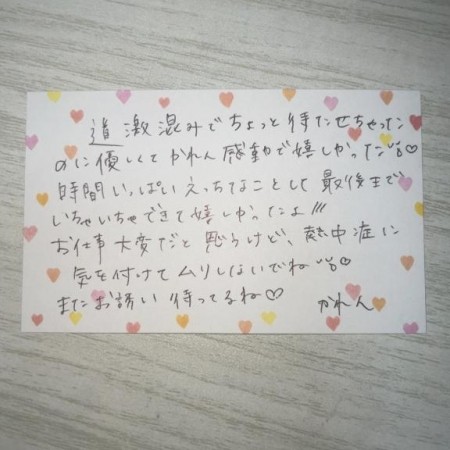 道激混みでちょっと待たせちゃった
のに優しくてかれん感動で嬉しかった♡
時間いっぱいえっちなことして最後まで
いちゃいちゃできて嬉しかったよ!!!
お仕事大変だと思うけど、熱中症に
気を付けてムリしないでね♡
またお誘い待ってるね♡ かれん